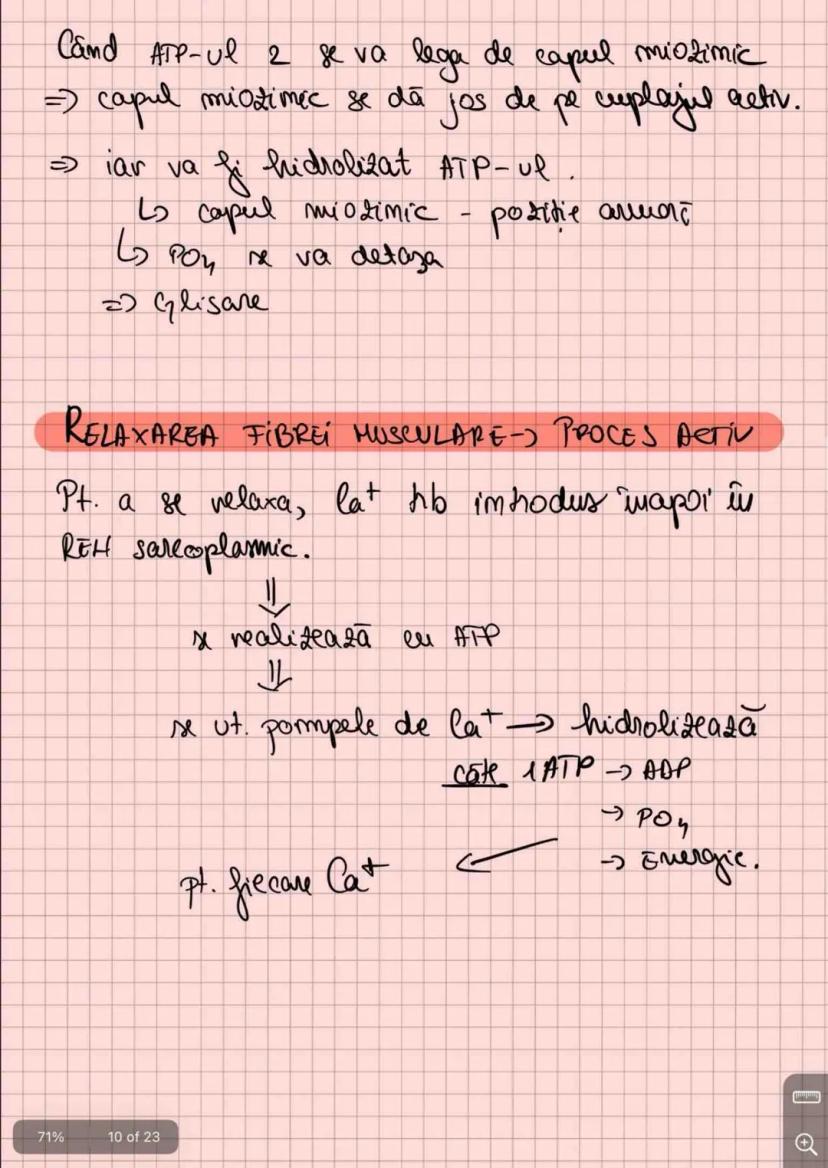 Când ATP-ul 2 se va lega de capul miozinic
=> capul miozinic se dă jos de pe cuplajul activ.
=> iar va fi hidrolizat ATP-ul.
↳ capul miozinic - poziție armată
↳ PO4 se va detașa
=> Glisare
RELAXAREA FIBREI MUSCULARE -> PROCES ACTIV
Pt. a se relaxa, Ca+ trb introdus înapoi în
REH sarcoplasmic.
⇓
se realizează cu ATP
⇓
se ut. pompele de Ca+ → hidrolizează
câte 1 ATP → ADP
→ PO4
→ Energie.
pt. fiecare Ca+ ←
71% 10 of 23